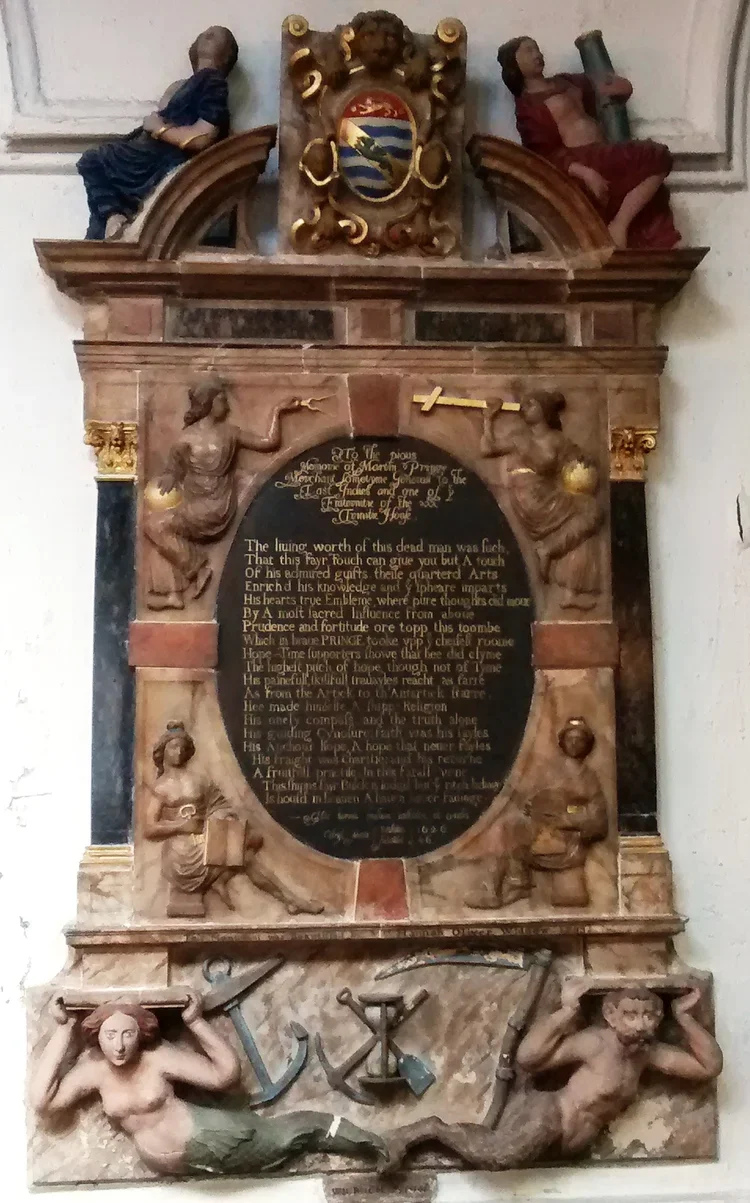 To the pious
Memorie of Martin Pringe
Merchant sometyme Generall to the
East Indies and one of yͤ
Fraternitie of the
Trinitie House
The liuing worth of this dead man was such,
That this Fayr Touch can giue you but A touch
Of his admired guifts theise quarterd Arts
Enrich'd his knowledge and yͤ spheare imparts
His hearts true Embleme where pure thoughts did moue
By A most sacred Influence from aboue
Prudence and fortitude ore topp this toombe
Which in braue PRINGE tooke vpp yͤ cheifest roome
Hope-Time supporters showe that hee did clyme
The highest pitch of hope though not of Tyme
His painefull skillfull trauayles reacht as farre
As from the Artick to th'Antartick starre
Hee made himselfe A Shipp Religion
His onely compass and the truth alone
His guiding Cynosure faith was his sayles
His Anchour hope A hope that neuer fayles
His fraught was Charitie and his
A fruitfull practise In this fatall
This shipps fayr
Is hould in heauen
1626
46
Oliuer